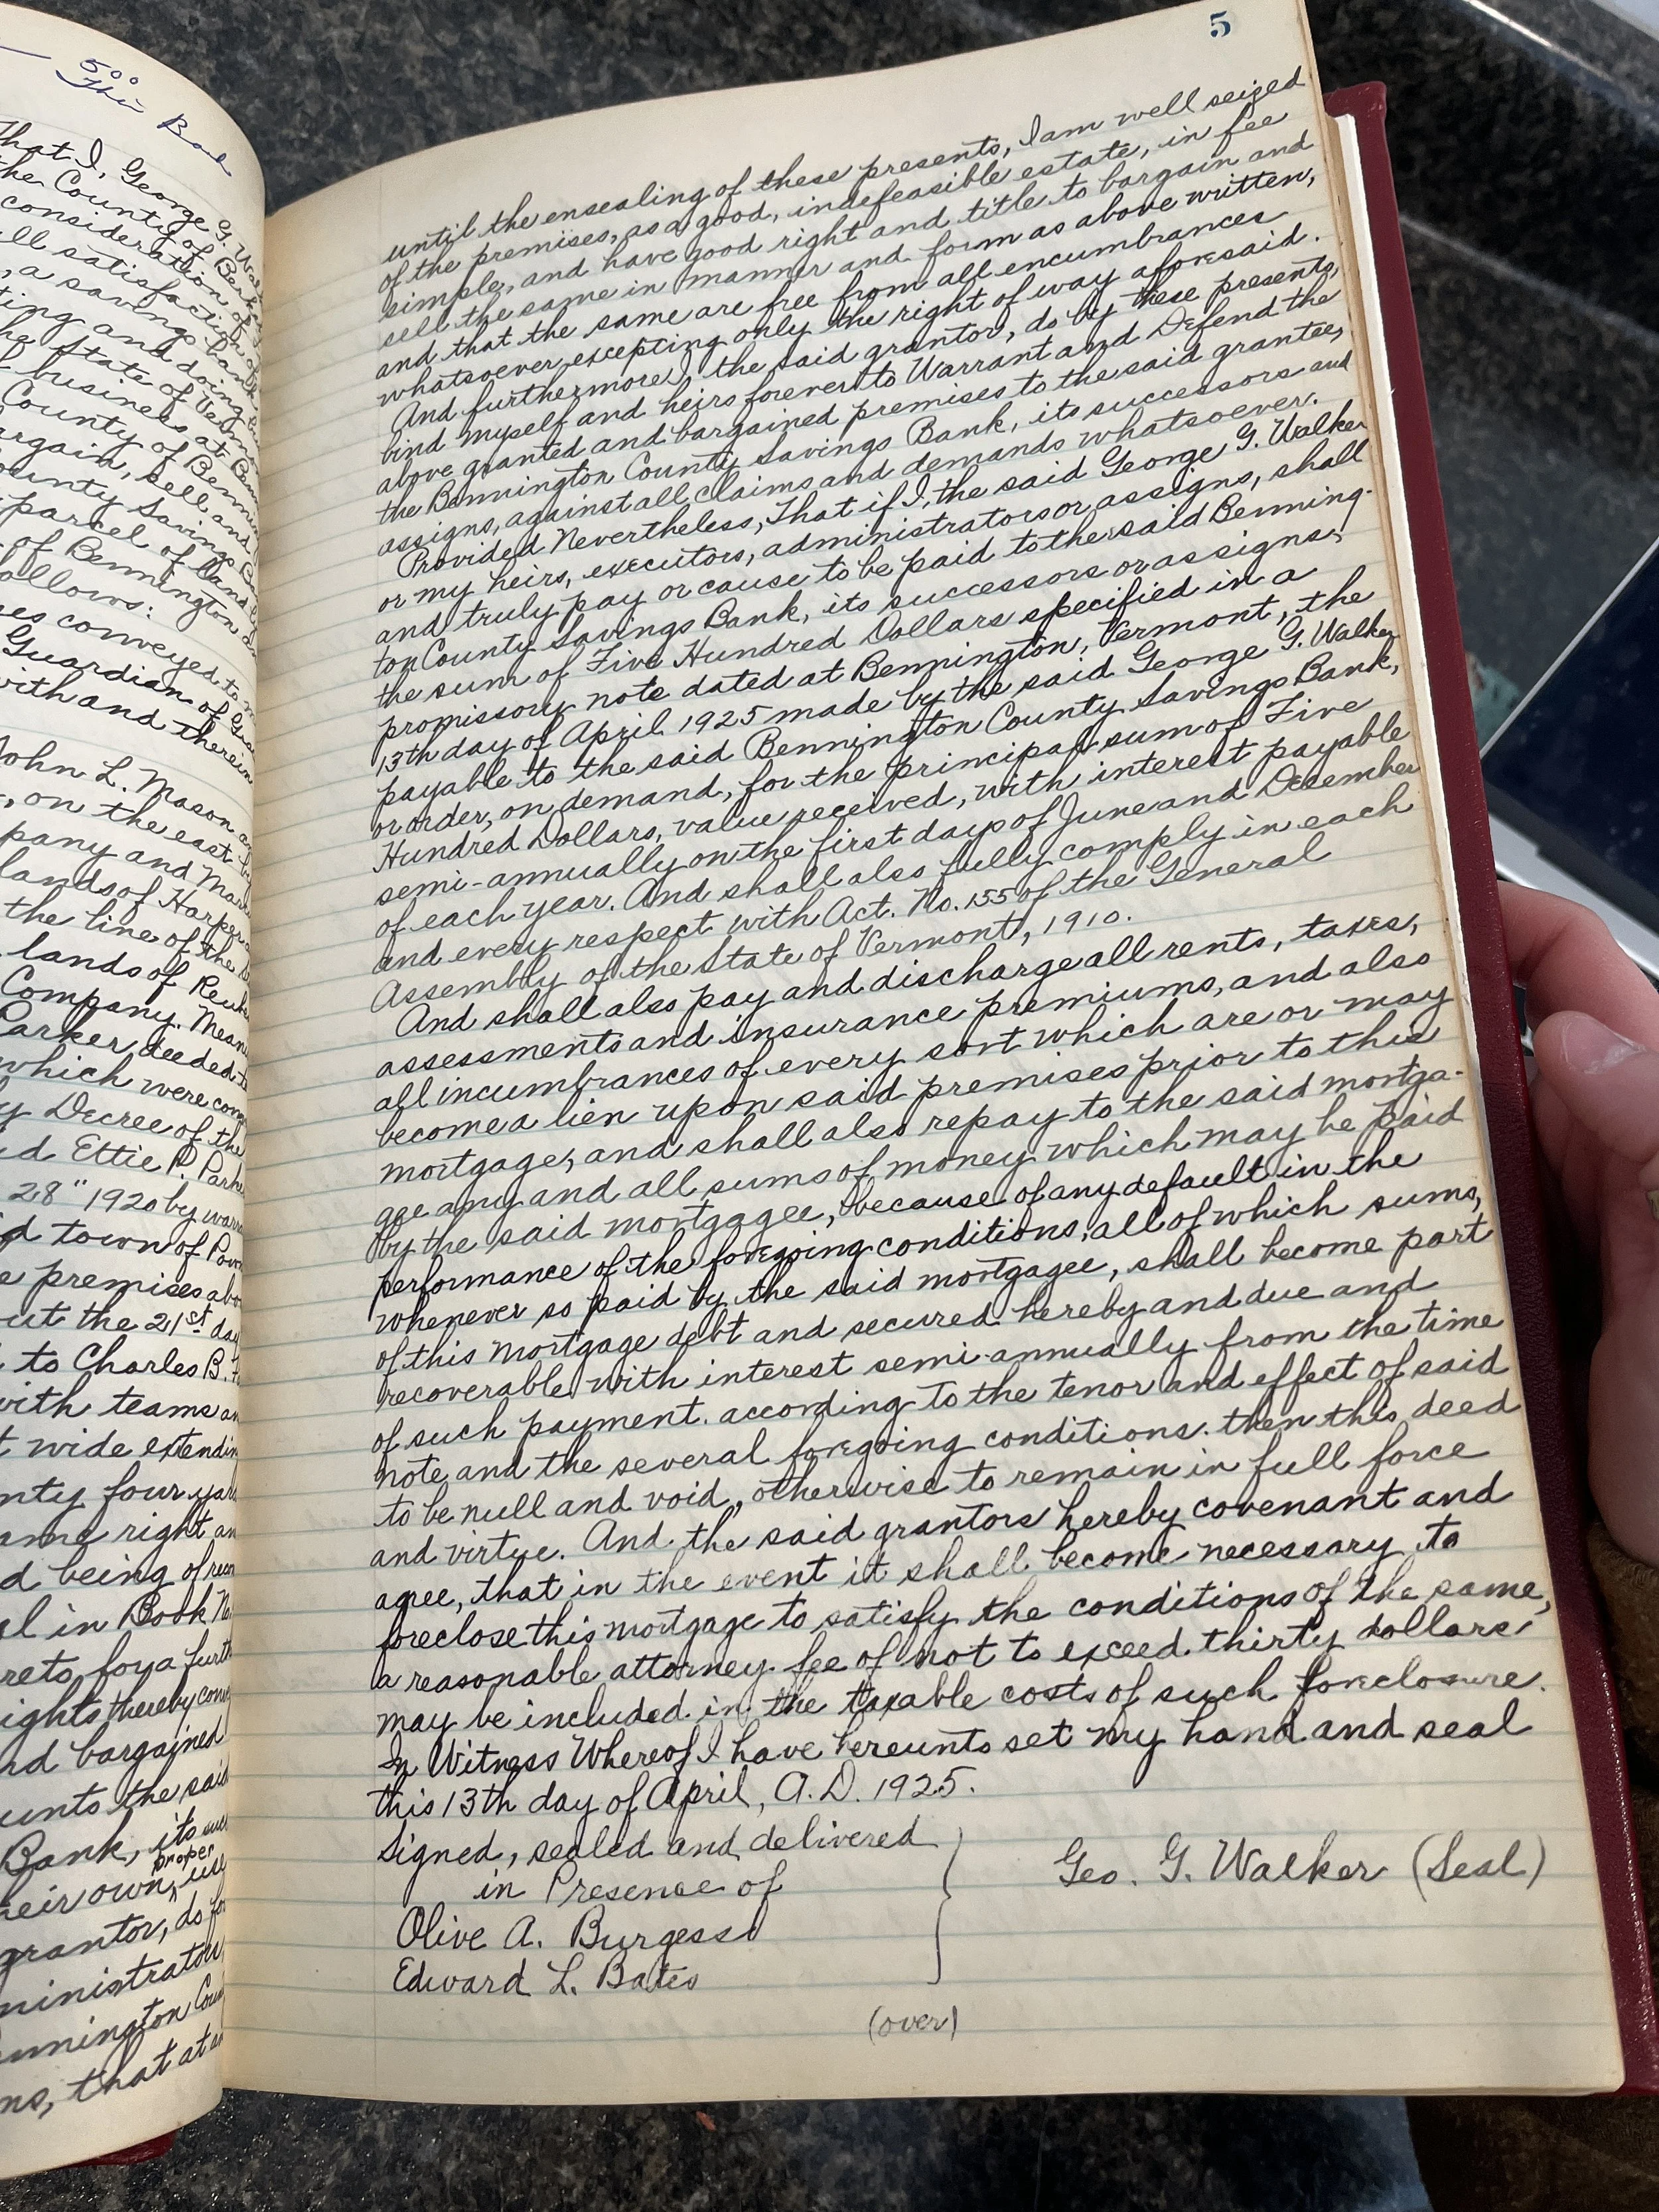 500
This Bad
That I, George G. Wal
the County of Berk
consideration of
ll satisfaction of
, a savings bank
ting and doing
the State of Vermo
f business at Benn
County of Benning
argain, sell and
ounty Savings
parcel of land
of Bennington
ollows:
es conveyed to
Guardian of
with and therein
John L. Mason
, on the east
pany and
lands of Harper
the line of the
lands of
Company.
Parker deeded to
which were
y Decree of the
d Ettie P. Park
28" 1920 by warr
d town of
e premises abo
ut the 21st day
to Charles B.
with teams
t wide extendin
nty four
ame right an
d being of
el in Book No
reto, for a furth
ights thereby
nd bargained
unto the said
Bank, its
proper
heir own, use
grantor, do for
ministrators
nnington Coun
ns, that at
5
until the ensealing of these presents, I am well seized
of the premises, as a good, indefeasible estate, in fee
simple, and have good right and title to bargain and
sell the same in manner and form as above written,
and that the same are free from all encumbrances
whatsoever excepting only the right of way aforesaid.
And furthermore I the said grantor, do by these presents,
bind myself and heirs forever to Warrant and Defend the
above granted and bargained premises to the said grantee,
the Bennington County Savings Bank, its successors and
assigns, against all claims and demands whatsoever.
Provided Nevertheless, That if I, the said George G. Walker
or my heirs, executors, administrators or assigns, shall
and truly pay or cause to be paid to the said Benning-
ton County Savings Bank, its successors or assigns,
the sum of Five Hundred Dollars specified in a
promissory note dated at Bennington, Vermont, the
13th day of April 1925 made by the said George G. Walker
payable to the said Bennington County Savings Bank,
or order, on demand, for the principal sum of Five
Hundred Dollars, value received, with interest payable
semi-annually on the first days of June and December
of each year. And shall also fully comply in each
and every respect with Act. No. 155 of the General
Assembly of the State of Vermont, 1910.
And shall also pay and discharge all rents, taxes,
assessments and insurance premiums, and also
all incumbrances of every sort which are or may
become a lien upon said premises prior to this
mortgage, and shall also repay to the said mortga-
gee any and all sums of money which may be paid
by the said mortgagee, because of any default in the
performance of the foregoing conditions, all of which sums,
whenever so paid by the said mortgagee, shall become part
of this mortgage debt and secured hereby and due and
recoverable with interest semi-annually from the time
of such payment. according to the tenor and effect of said
note, and the several foregoing conditions. then this deed
to be null and void, otherwise to remain in full force
and virtue. And the said grantors hereby covenant and
agree, that in the event it shall become necessary to
foreclose this mortgage to satisfy the conditions of the same,
a reasonable attorney fee of not to exceed thirty dollars
may be included in the taxable costs of such foreclosure.
In Witness Whereof I have hereunto set my hand and seal
this 13th day of April, A.D. 1925.
Signed, sealed and delivered
in Presence of
Geo. G. Walker (Seal)
Olive A. Burgess
Edward L. Bates
(over)